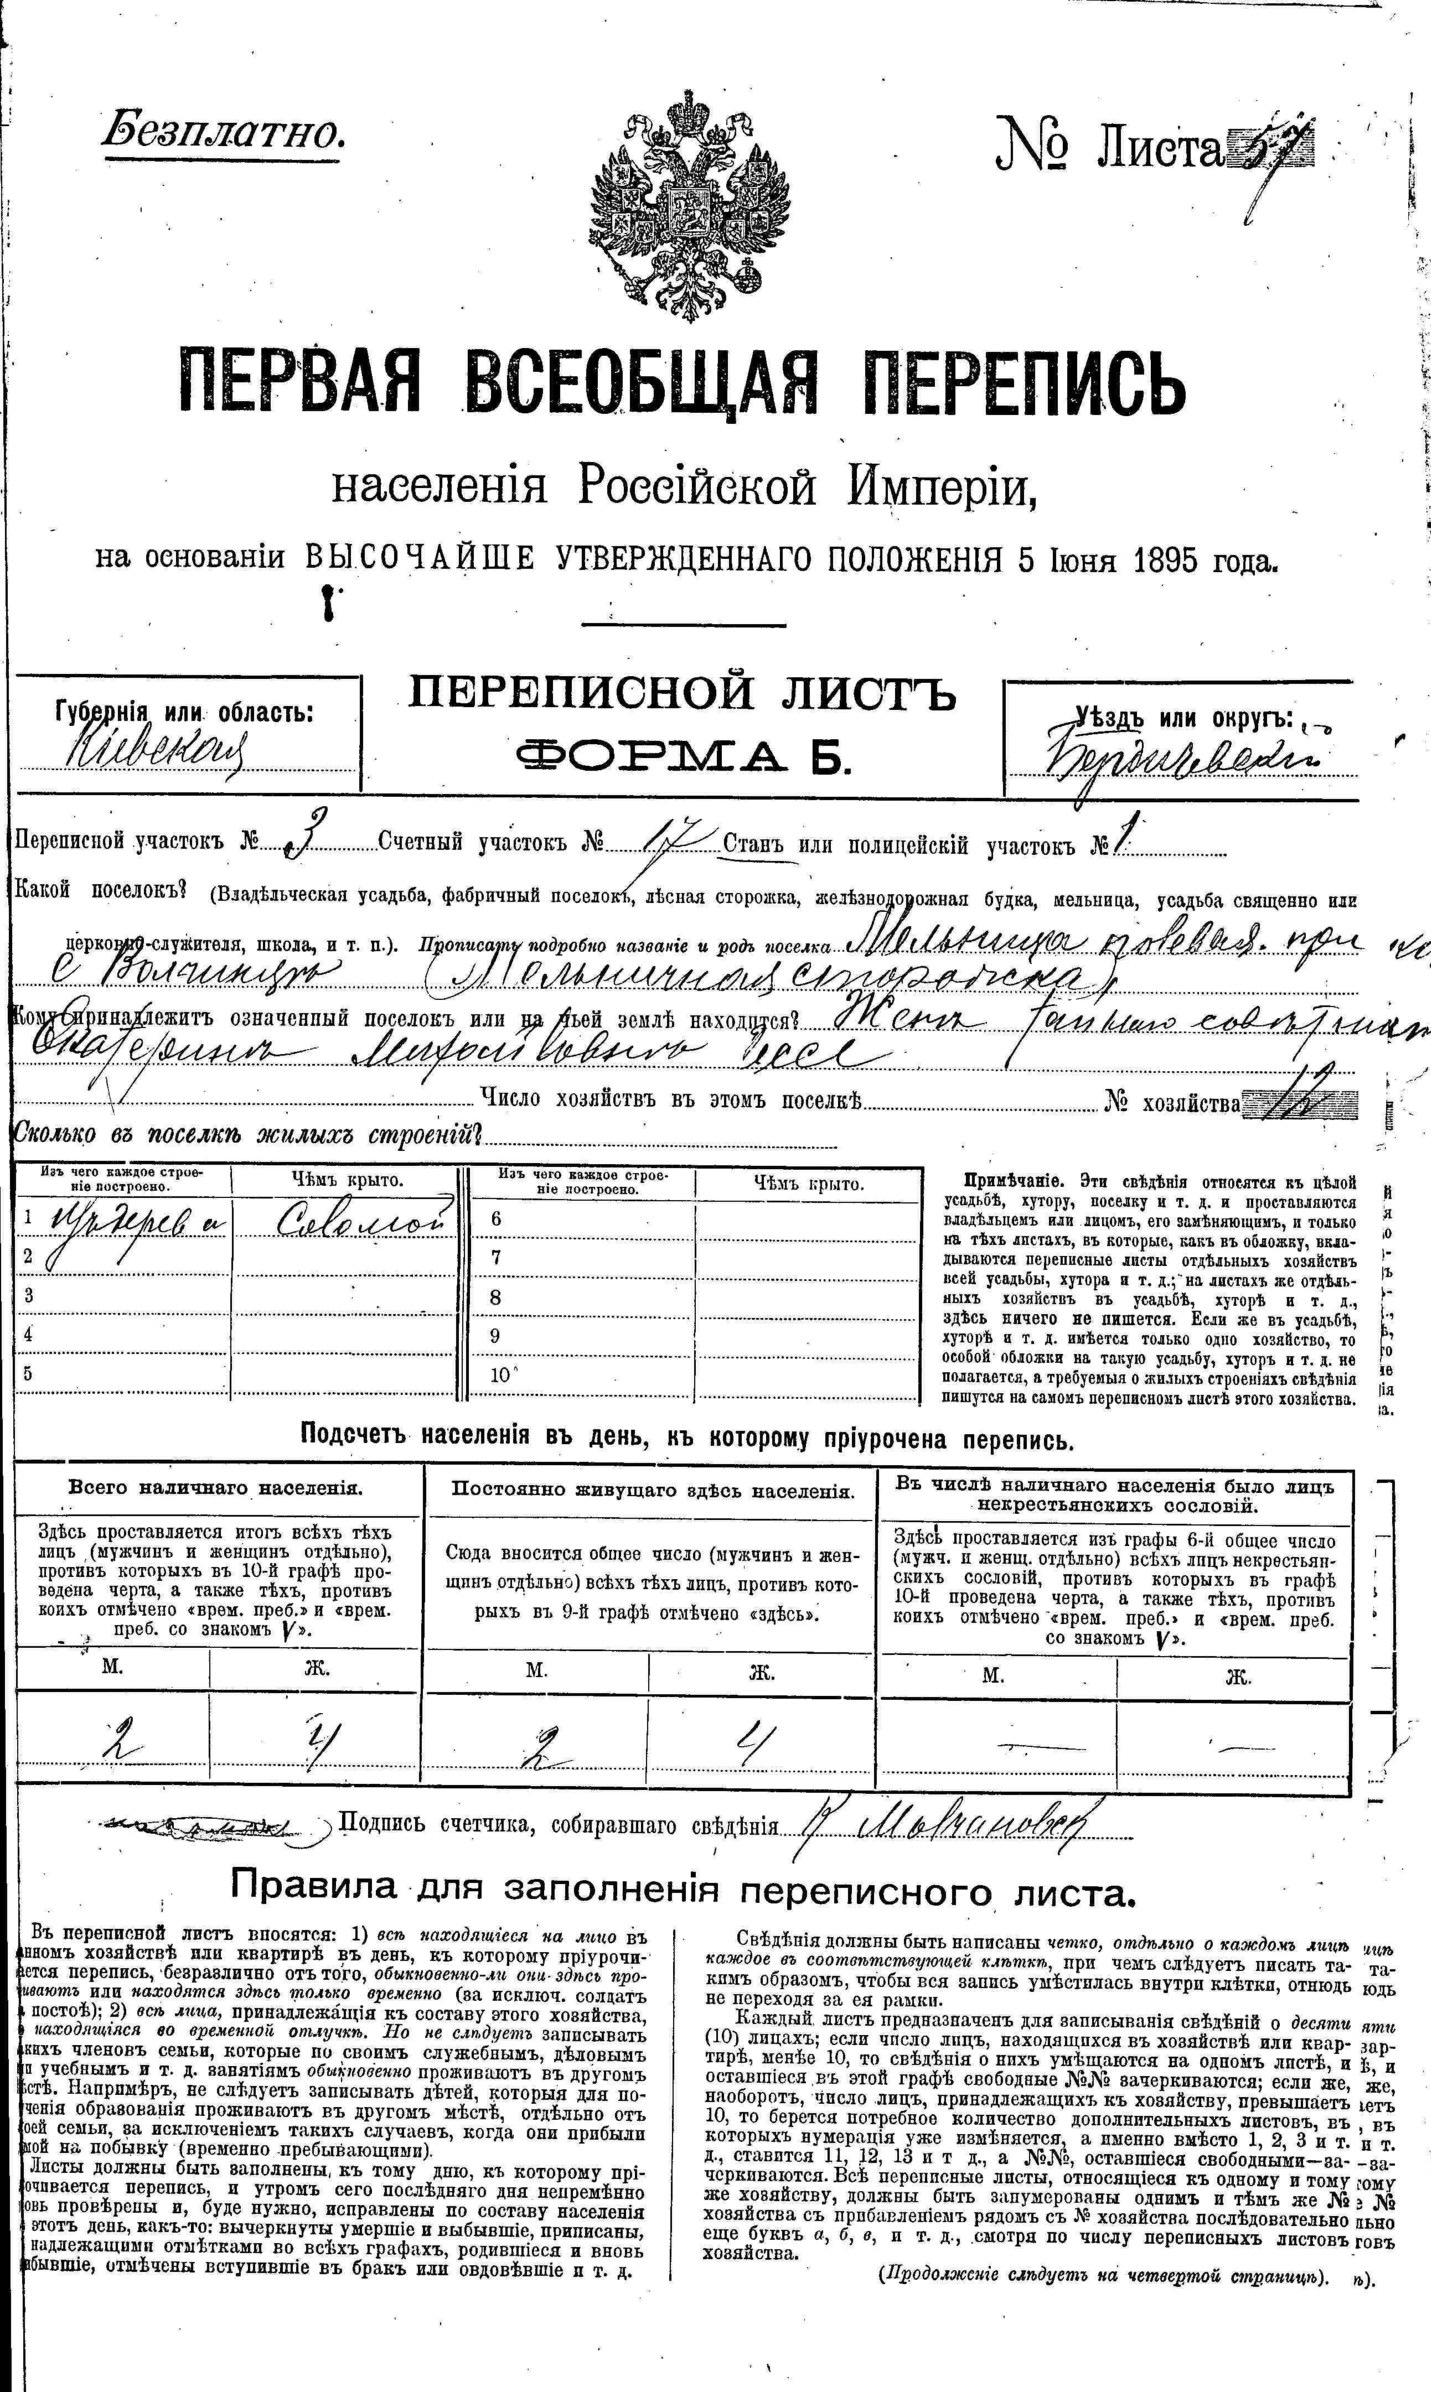 Безплатно.
№ Листа 57
ПЕРВАЯ ВСЕОБЩАЯ ПЕРЕПИСЬ
населенія Россійской Имперіи,
на основаніи ВЫСОЧАЙШЕ УТВЕРЖДЕННАГО ПОЛОЖЕНІЯ 5 Іюня 1895 года.
ПЕРЕПИСНОЙ ЛИСТЪ
ФОРМА Б.
Губернія или область:
Кіевская
Уѣздъ или округъ:
Бердичевскій
Переписной участокъ № 3 Счетный участокъ № 17 Станъ или полицейскій участокъ № 1
Какой поселокъ? (Владѣльческая усадьба, фабричный поселокъ, лѣсная сторожка, желѣзнодорожная будка, мельница, усадьба священно или
церковно-служителя, школа, и т. п.). Прописать подробно названіе и родъ поселка Мельница при
с (Мельничная сторожка)
Кому принадлежитъ означенный поселокъ или на чьей землѣ находится? Женѣ тайнаго
Екатеринѣ Михайловнѣ
Число хозяйствъ въ этомъ поселкѣ № хозяйства 12
Сколько въ поселкѣ жилыхъ строеній?
Изъ чего каждое строе-
ніе построено.
Чѣмъ крыто.
Изъ чего каждое строе-
ніе построено.
Чѣмъ крыто.
1 Изъ дерева Соломой 6
2 7
3 8
4 9
5 10
Примѣчаніе. Эти свѣдѣнія относятся къ цѣлой
усадьбѣ, хутору, поселку и т. д. и проставляются
владѣльцемъ или лицомъ, его замѣняющимъ, и только
на тѣхъ листахъ, въ которые, какъ въ обложку, вкла-
дываются переписные листы отдѣльныхъ хозяйствъ
всей усадьбы, хутора и т. д.; на листахъ же отдѣль-
ныхъ хозяйствъ въ усадьбѣ, хуторѣ и т. д.,
здѣсь ничего не пишется. Если же въ усадьбѣ,
хуторѣ и т. д. имѣется только одно хозяйство, то
особой обложки на такую усадьбу, хуторъ и т. д. не
полагается, а требуемыя о жилыхъ строеніяхъ свѣдѣнія
пишутся на самомъ переписномъ листѣ этого хозяйства.
Подсчетъ населенія въ день, къ которому пріурочена перепись.
Всего наличнаго населенія.
Здѣсь проставляется итогъ всѣхъ тѣхъ
лицъ (мужчинъ и женщинъ отдѣльно),
противъ которыхъ въ 10-й графѣ про-
ведена черта, а также тѣхъ, противъ
коихъ отмѣчено «врем. преб.» и «врем.
преб. со знакомъ V».
М. Ж.
2 4
Постоянно живущаго здѣсь населенія.
Сюда вносится общее число (мужчинъ и жен-
щинъ отдѣльно) всѣхъ тѣхъ лицъ, противъ кото-
рыхъ въ 9-й графѣ отмѣчено «здѣсь».
М. Ж.
2 4
Въ числѣ наличнаго населенія было лицъ
некрестьянскихъ сословій.
Здѣсь проставляется изъ графы 6-й общее число
(мужч. и женщ. отдѣльно) всѣхъ лицъ некрестьян-
скихъ сословій, противъ которыхъ въ графѣ
10-й проведена черта, а также тѣхъ, противъ
коихъ отмѣчено «врем. преб.» и «врем. преб.
со знакомъ V».
М. Ж.
— —
Подпись счетчика, собиравшаго свѣдѣнія К
Правила для заполненія переписного листа.
Въ переписной листъ вносятся: 1) всѣ находящіеся на лицо въ
нномъ хозяйствѣ или квартирѣ въ день, къ которому пріурочи-
ется перепись, безразлично отъ того, обыкновенно-ли они здѣсь про-
ивають или находятся здѣсь только временно (за исключ. солдатъ
постоѣ); 2) всѣ лица, принадлежащія къ составу этого хозяйства,
находящіяся во временной отлучкѣ. Но не слѣдуетъ записывать
кихъ членовъ семьи, которые по своимъ служебнымъ, дѣловымъ
и учебнымъ и т. д. занятіямъ обыкновенно проживаютъ въ другомъ
стѣ. Напримѣръ, не слѣдуетъ записывать дѣтей, которыя для по-
ченія образованія проживаютъ въ другомъ мѣстѣ, отдѣльно отъ
оей семьи, за исключеніемъ такихъ случаевъ, когда они прибыли
мой на побывку (временно пребывающими).
Листы должны быть заполнены, къ тому дню, къ которому прі-
очивается перепись, и утромъ сего послѣдняго дня непремѣнно
овь провѣрены и, буде нужно, исправлены по составу населенія
этотъ день, какъ-то: вычеркнуты умершіе и выбывшіе, приписаны,
надлежащими отмѣтками во всѣхъ графахъ, родившіеся и вновь
ибывшіе, отмѣчены вступившіе въ бракъ или овдовѣвшіе и т. д.
Свѣдѣнія должны быть написаны четко, отдѣльно о каждомъ лицѣ
каждое въ соотвѣтствующей клѣткѣ, при чемъ слѣдуетъ писать та-
кимъ образомъ, чтобы вся запись умѣстилась внутри клѣтки, отнюдь
не переходя за ея рамки.
Каждый листъ предназначенъ для записыванія свѣдѣній о десяти
(10) лицахъ; если число лицъ, находящихся въ хозяйствѣ или квар-
тирѣ, менѣе 10, то свѣдѣнія о нихъ умѣщаются на одномъ листѣ, и
оставшіеся въ этой графѣ свободные №№ зачеркиваются; если же,
наоборотъ, число лицъ, принадлежащихъ къ хозяйству, превышаетъ
10, то берется потребное количество дополнительныхъ листовъ, въ
которыхъ нумерація уже измѣняется, а именно вмѣсто 1, 2, 3 и т.
д., ставится 11, 12, 13 и т д., а №№, оставшіеся свободными—за-
черкиваются. Всѣ переписные листы, относящіеся къ одному и тому
же хозяйству, должны быть занумерованы однимъ и тѣмъ же №
хозяйства съ прибавленіемъ рядомъ съ № хозяйства послѣдовательно
еще буквъ а, б, в, и т. д., смотря по числу переписныхъ листовъ
хозяйства.
(Продолженіе слѣдуетъ на четвертой страницѣ).